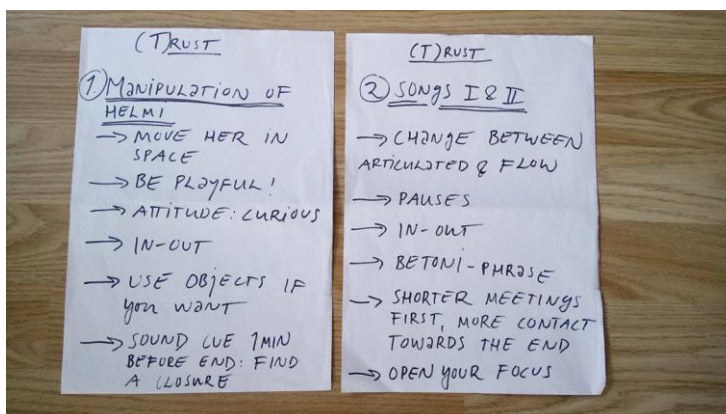 (T)RUST
1 MANIPULATION OF
HELMI
→ MOVE HER IN
SPACE
→ BE PLAYFUL!
→ ATTITUDE: CURIOUS
→ IN-OUT
→ USE OBJECTS IF
YOU WANT
→ SOUND CUE 1MIN
BEFORE END: FIND
A CLOSURE
(T)RUST
2 SONGS I & II
→ CHANGE BETWEEN
ARTICULATED & FLOW
→ PAUSES
→ IN-OUT
→ BETONI-PHRASE
→ SHORTER MEETINGS
FIRST, MORE CONTACT
TOWARDS THE END
→ OPEN YOUR FOCUS